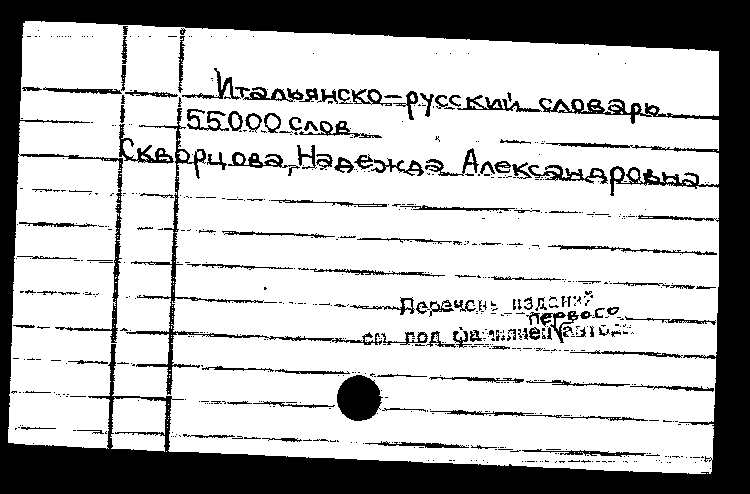 Итальянско-русский словарь
55000 слов
Скворцова, Надежда Александровна
Перечень изданий
первого
см. под фамилией автора